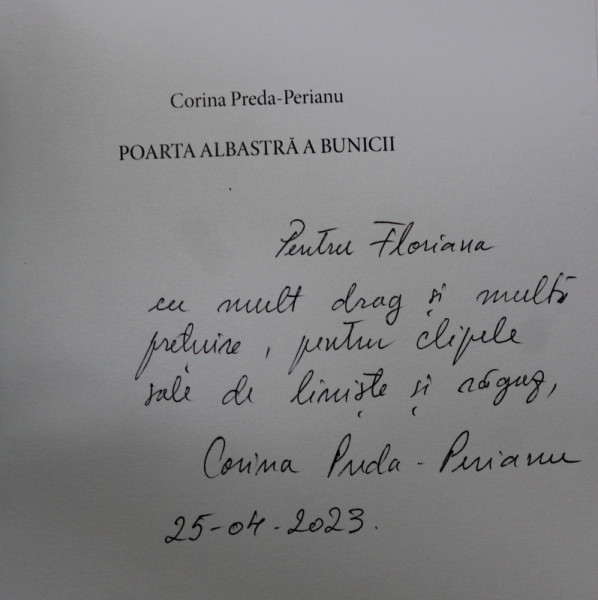 Corina Preda-Perianu
POARTA ALBASTRĂ A BUNICII
Pentru Floriana
cu mult drag și multă
prețuire, pentru clipele
sale de liniște și răgaz,
Corina Preda - Perianu
25-04-2023.